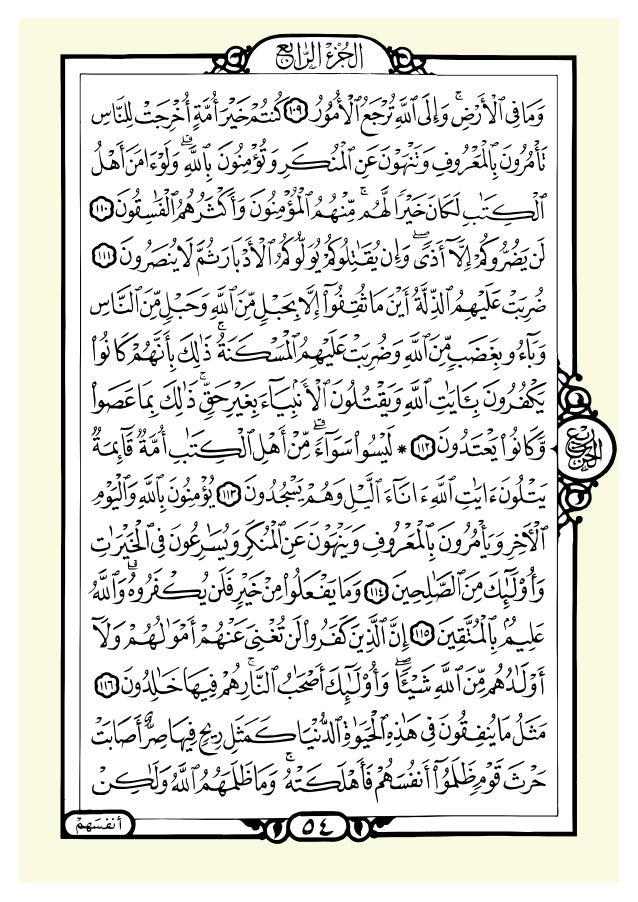 الجزء الرابع
وَمَا فِي ٱلْأَرْضِ ۚ وَإِلَى ٱللَّهِ تُرْجَعُ ٱلْأُمُورُ ١٠٩ كُنتُمْ خَيْرَ أُمَّةٍ أُخْرِجَتْ لِلنَّاسِ
تَأْمُرُونَ بِٱلْمَعْرُوفِ وَتَنْهَوْنَ عَنِ ٱلْمُنكَرِ وَتُؤْمِنُونَ بِٱللَّهِ ۗ وَلَوْ ءَامَنَ أَهْلُ
ٱلْكِتَٰبِ لَكَانَ خَيْرًا لَّهُم ۚ مِّنْهُمُ ٱلْمُؤْمِنُونَ وَأَكْثَرُهُمُ ٱلْفَٰسِقُونَ ١١٠
لَن يَضُرُّوكُمْ إِلَّآ أَذًى ۖ وَإِن يُقَٰتِلُوكُمْ يُوَلُّوكُمُ ٱلْأَدْبَارَ ثُمَّ لَا يُنصَرُونَ ١١١
ضُرِبَتْ عَلَيْهِمُ ٱلذِّلَّةُ أَيْنَ مَا ثُقِفُوٓا۟ إِلَّا بِحَبْلٍ مِّنَ ٱللَّهِ وَحَبْلٍ مِّنَ ٱلنَّاسِ
وَبَآءُو بِغَضَبٍ مِّنَ ٱللَّهِ وَضُرِبَتْ عَلَيْهِمُ ٱلْمَسْكَنَةُ ۚ ذَٰلِكَ بِأَنَّهُمْ كَانُوا۟
يَكْفُرُونَ بِـَٔايَٰتِ ٱللَّهِ وَيَقْتُلُونَ ٱلْأَنۢبِيَآءَ بِغَيْرِ حَقٍّ ۚ ذَٰلِكَ بِمَا عَصَوا۟
وَّكَانُوا۟ يَعْتَدُونَ ١١٢ * لَيْسُوا۟ سَوَآءً ۗ مِّنْ أَهْلِ ٱلْكِتَٰبِ أُمَّةٌ قَآئِمَةٌ
الحزب السابع
يَتْلُونَ ءَايَٰتِ ٱللَّهِ ءَانَآءَ ٱلَّيْلِ وَهُمْ يَسْجُدُونَ ١١٣ يُؤْمِنُونَ بِٱللَّهِ وَٱلْيَوْمِ
ٱلْءَاخِرِ وَيَأْمُرُونَ بِٱلْمَعْرُوفِ وَيَنْهَوْنَ عَنِ ٱلْمُنكَرِ وَيُسَٰرِعُونَ فِي ٱلْخَيْرَٰتِ
وَأُو۟لَٰٓئِكَ مِنَ ٱلصَّٰلِحِينَ ١١٤ وَمَا يَفْعَلُوا۟ مِنْ خَيْرٍ فَلَن يُكْفَرُوهُ ۗ وَٱللَّهُ
عَلِيمٌۢ بِٱلْمُتَّقِينَ ١١٥ إِنَّ ٱلَّذِينَ كَفَرُوا۟ لَن تُغْنِىَ عَنْهُمْ أَمْوَٰلُهُمْ وَلَآ
أَوْلَٰدُهُم مِّنَ ٱللَّهِ شَيْـًٔا ۖ وَأُو۟لَٰٓئِكَ أَصْحَٰبُ ٱلنَّارِ ۚ هُمْ فِيهَا خَٰلِدُونَ ١١٦
مَثَلُ مَا يُنفِقُونَ فِي هَٰذِهِ ٱلْحَيَوٰةِ ٱلدُّنْيَا كَمَثَلِ رِيحٍ فِيهَا صِرٌّ أَصَابَتْ
حَرْثَ قَوْمٍ ظَلَمُوٓا۟ أَنفُسَهُمْ فَأَهْلَكَتْهُ ۚ وَمَا ظَلَمَهُمُ ٱللَّهُ وَلَٰكِنْ
أنفسهم
٥٤